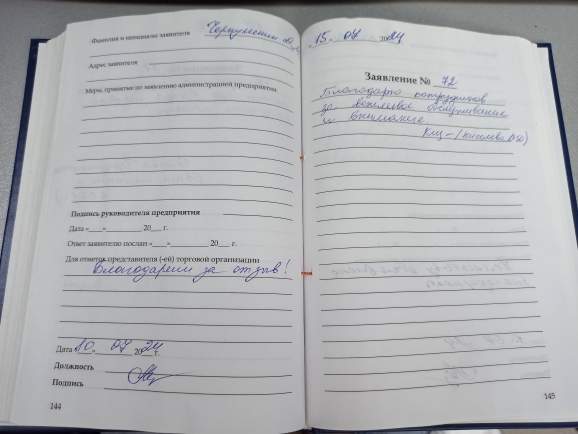 Фамилия и инициалы заявителя
Адрес заявителя
Меры, принятые по заявлению администрацией предприятия
Подпись руководителя предприятия
Дата «___»________ 20___ г.
Ответ заявителю послан «___»________ 20___ г.
Для отметок представителя (-ей) торговой организации
Благодарим за отзыв!
Дата «10» 07 2024 г.
Должность
Подпись
144
«15» 07 2024
Заявление № 72
Благодарю сотрудников
за вежливое обслуживание
и внимание
145